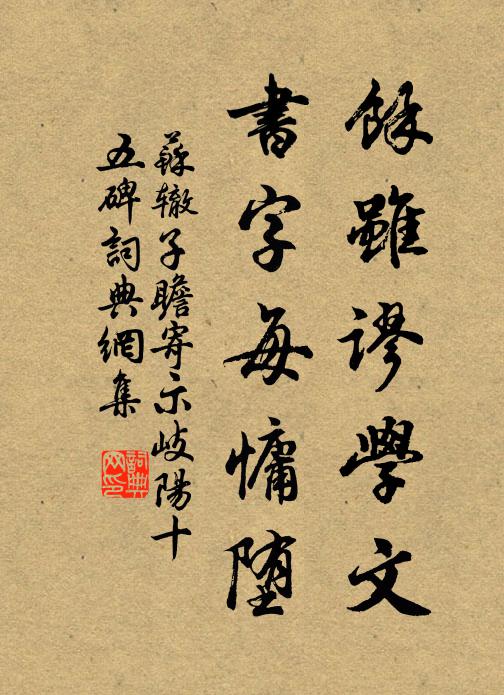 餘雖謬學文
書字每慵堕
蘇辙子瞻寄示岐陽十
五碑詞典網集
詞典网印